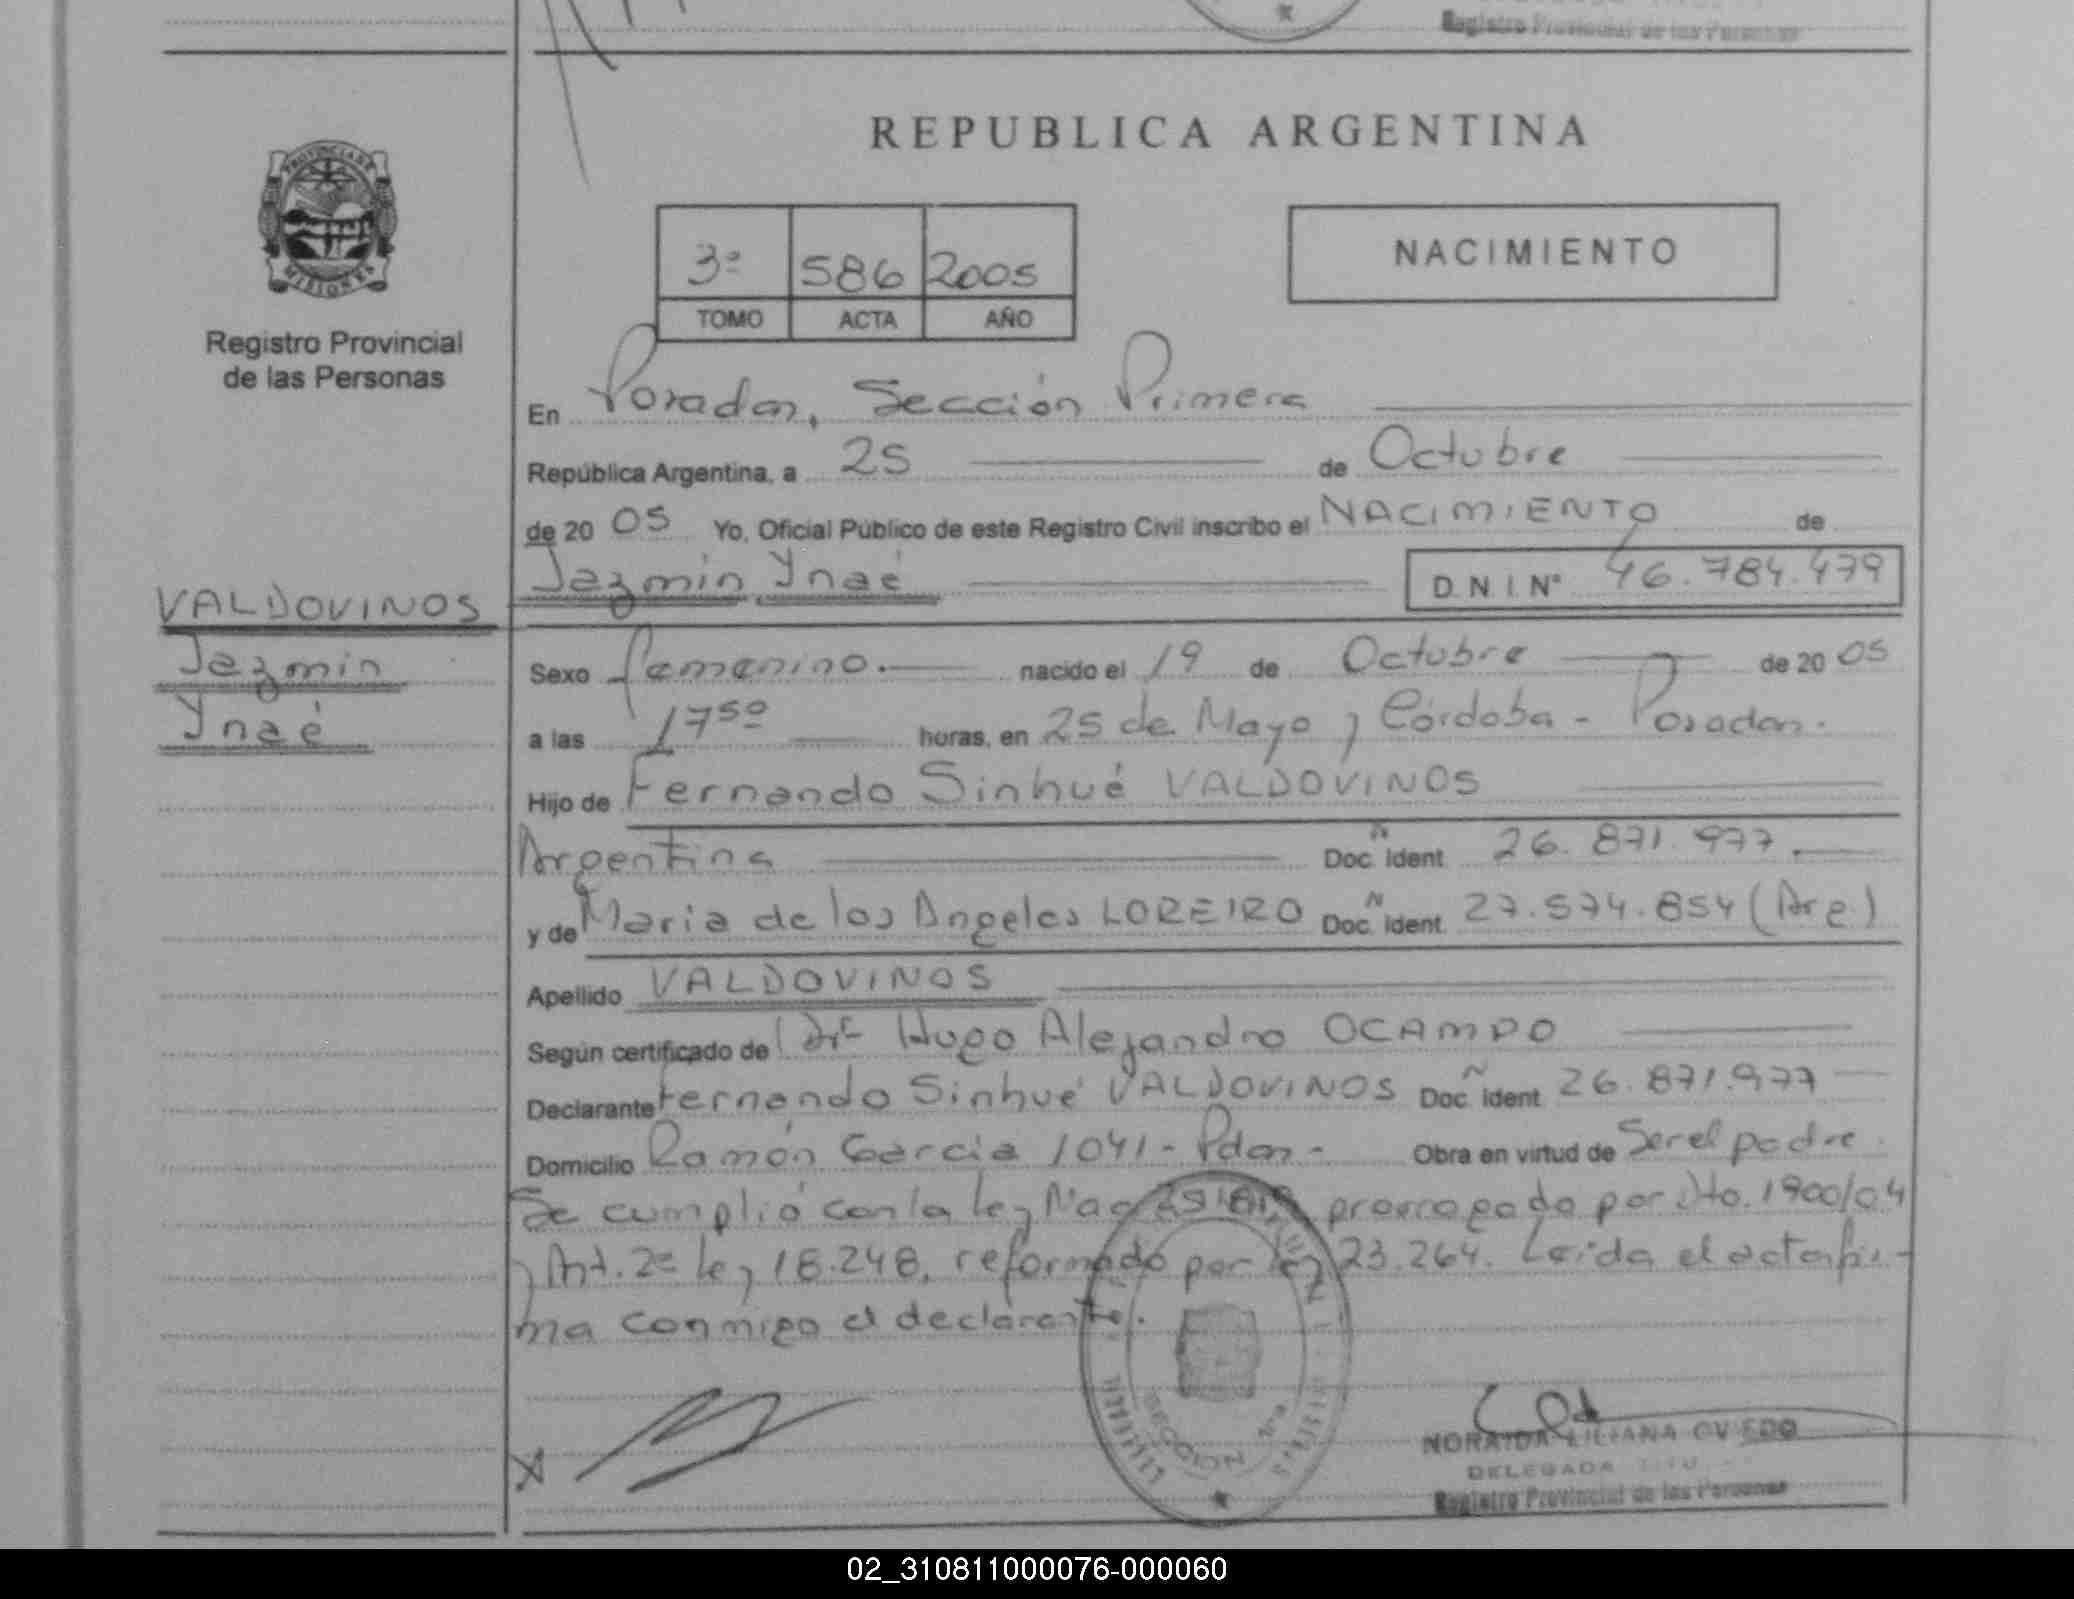 Registro Provincial de las Personas
PROVINCIA DE
MISIONES
Registro Provincial
de las Personas
REPUBLICA ARGENTINA
3º 586 2005
TOMO ACTA AÑO
NACIMIENTO
En Posadas, Sección Primera
República Argentina, a 25 de Octubre
de 20 05 Yo, Oficial Público de este Registro Civil inscribo el NACIMIENTO de
Jazmín Ynaé D.N.I.Nº 46.784.479
VALDOVINOS
Jazmín
Ynaé
Sexo femenino.- nacido el 19 de Octubre de 20 05
a las 17 50 horas, en 25 de Mayo y Córdoba - Posadas.
Hijo de Fernando Sinhué VALDOVINOS
Argentina Doc. Ident. 26.871.977.
y de Maria de los Angeles LOREIRO Doc. Ident. 27.574.854 (Arg.)
Apellido VALDOVINOS
Según certificado de Dr. Hugo Alejandro OCAMPO
Declarante Fernando Sinhué VALDOVINOS Doc. Ident. 26.871.977
Domicilio Ramón García 1041 - Pdas - Obra en virtud de Ser el padre.
Se cumplió con la ley Nac. prorrogado por Dto. 1900/04
y Art. 2º ley 18.248, reformado por ley 23.264. Leída el acta fir-
ma conmigo el declarante.
SECCION 1ra
NORAIDA LILIANA OVIEDO
DELEGADA
Registro Provincial de las Personas
02_310811000076-000060